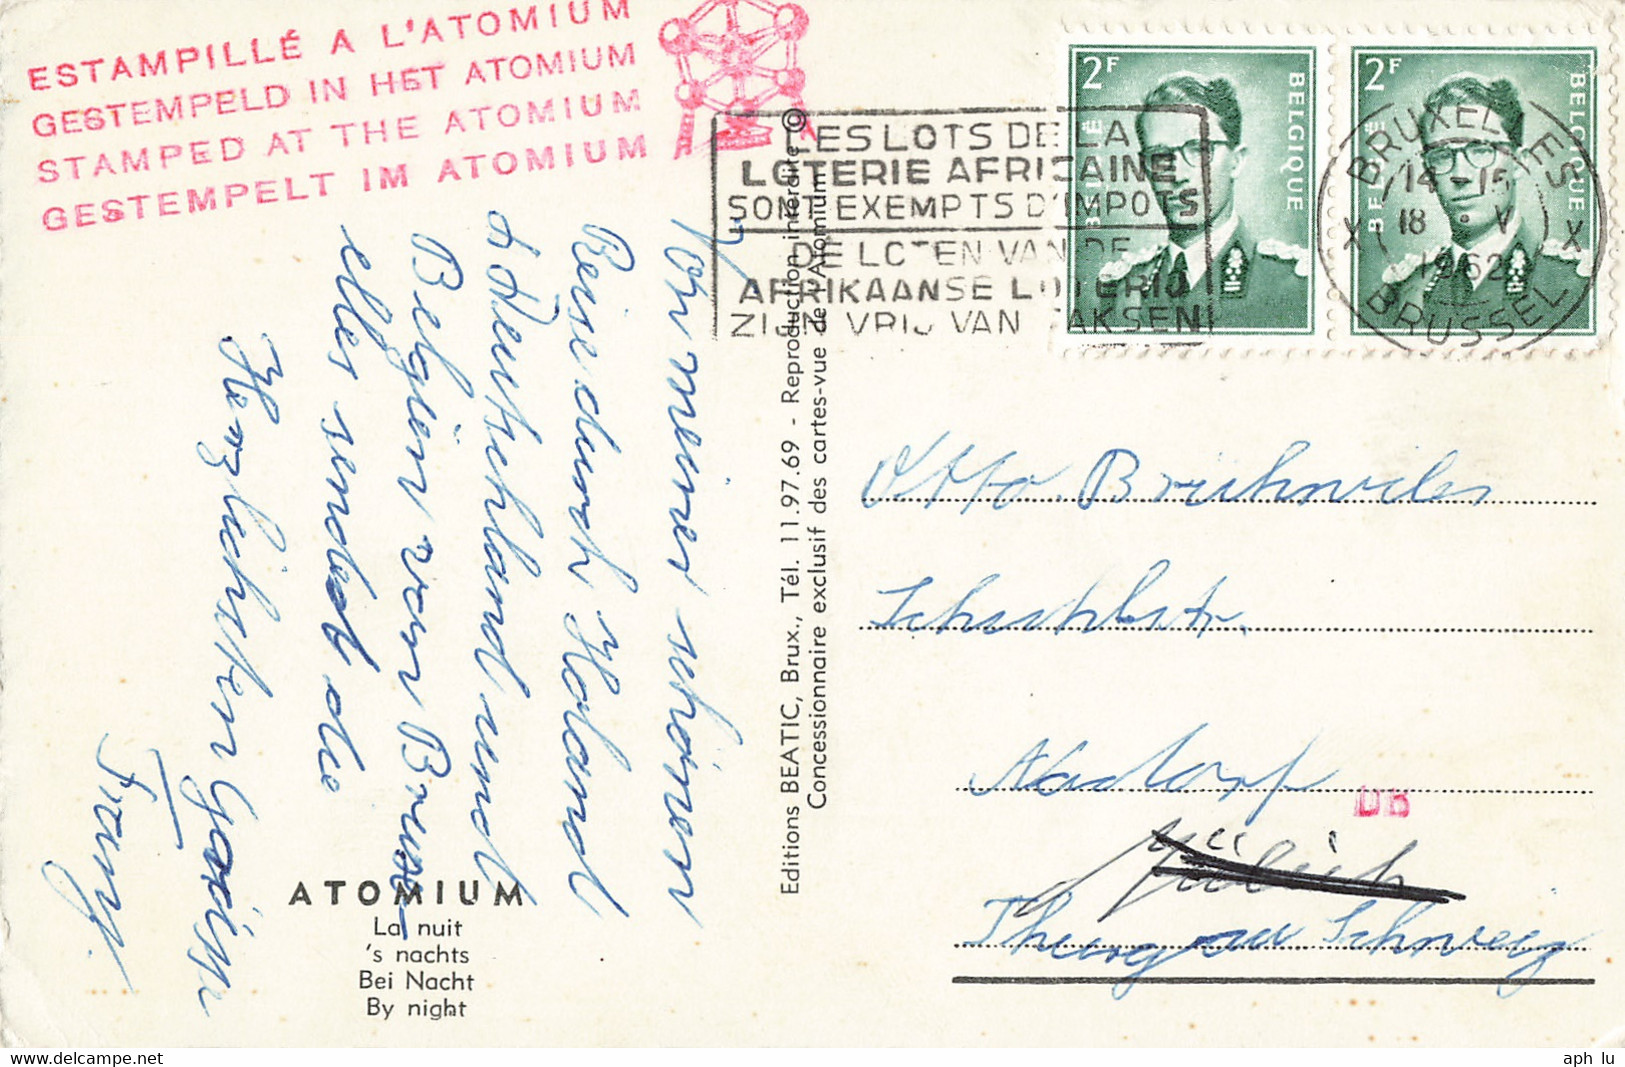 ESTAMPILLÉ A L'ATOMIUM
GESTEMPELD IN HET ATOMIUM
STAMPED AT THE ATOMIUM
GESTEMPELT IM ATOMIUM
LES LOTS DE LA
LOTERIE AFRICAINE
SONT EXEMPTS D'IMPOTS
DE LOTEN VAN DE
AFRIKAANSE LOTERIJ
ZIJN VRIJ VAN TAKSEN
2F
BELGIË
BELGIQUE
2F
BELGIË
BELGIQUE
BRUXELLES
X 14-15 X
18 V
1962
BRUSSEL
Von meiner schönen
Reise durch Holand
Deutschland und
Belgien von
sendet die
Herzlichsten Grüsse
Franz.
ATOMIUM
La nuit
's nachts
Bei Nacht
By night
Editions BEATIC, Brux., Tél. 11.97.69 - Reproduction interdite ©
Concessionnaire exclusif des cartes-vue de l'Atomium
Otto. Brühwiler
Aadorf
DB
Jülich
Thurgau Schweiz
aph lu